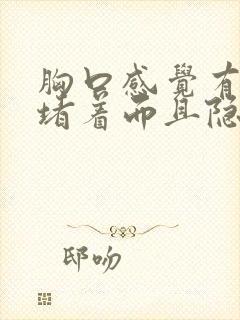 胸口感覺有
堵着而且隐
邸吻